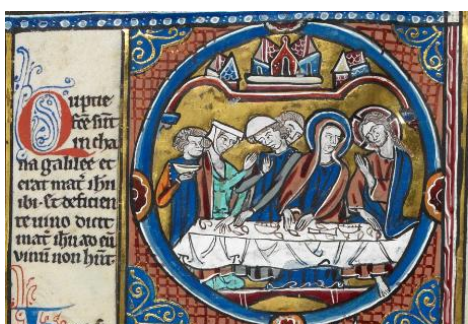 Nuptie
fc̄e sūt
in cha
na galilee et
erat mat̄ ihū
ibi. Et deficien
te uino dicit
mat̄ ihū ad eū
vinū non hn̄t.